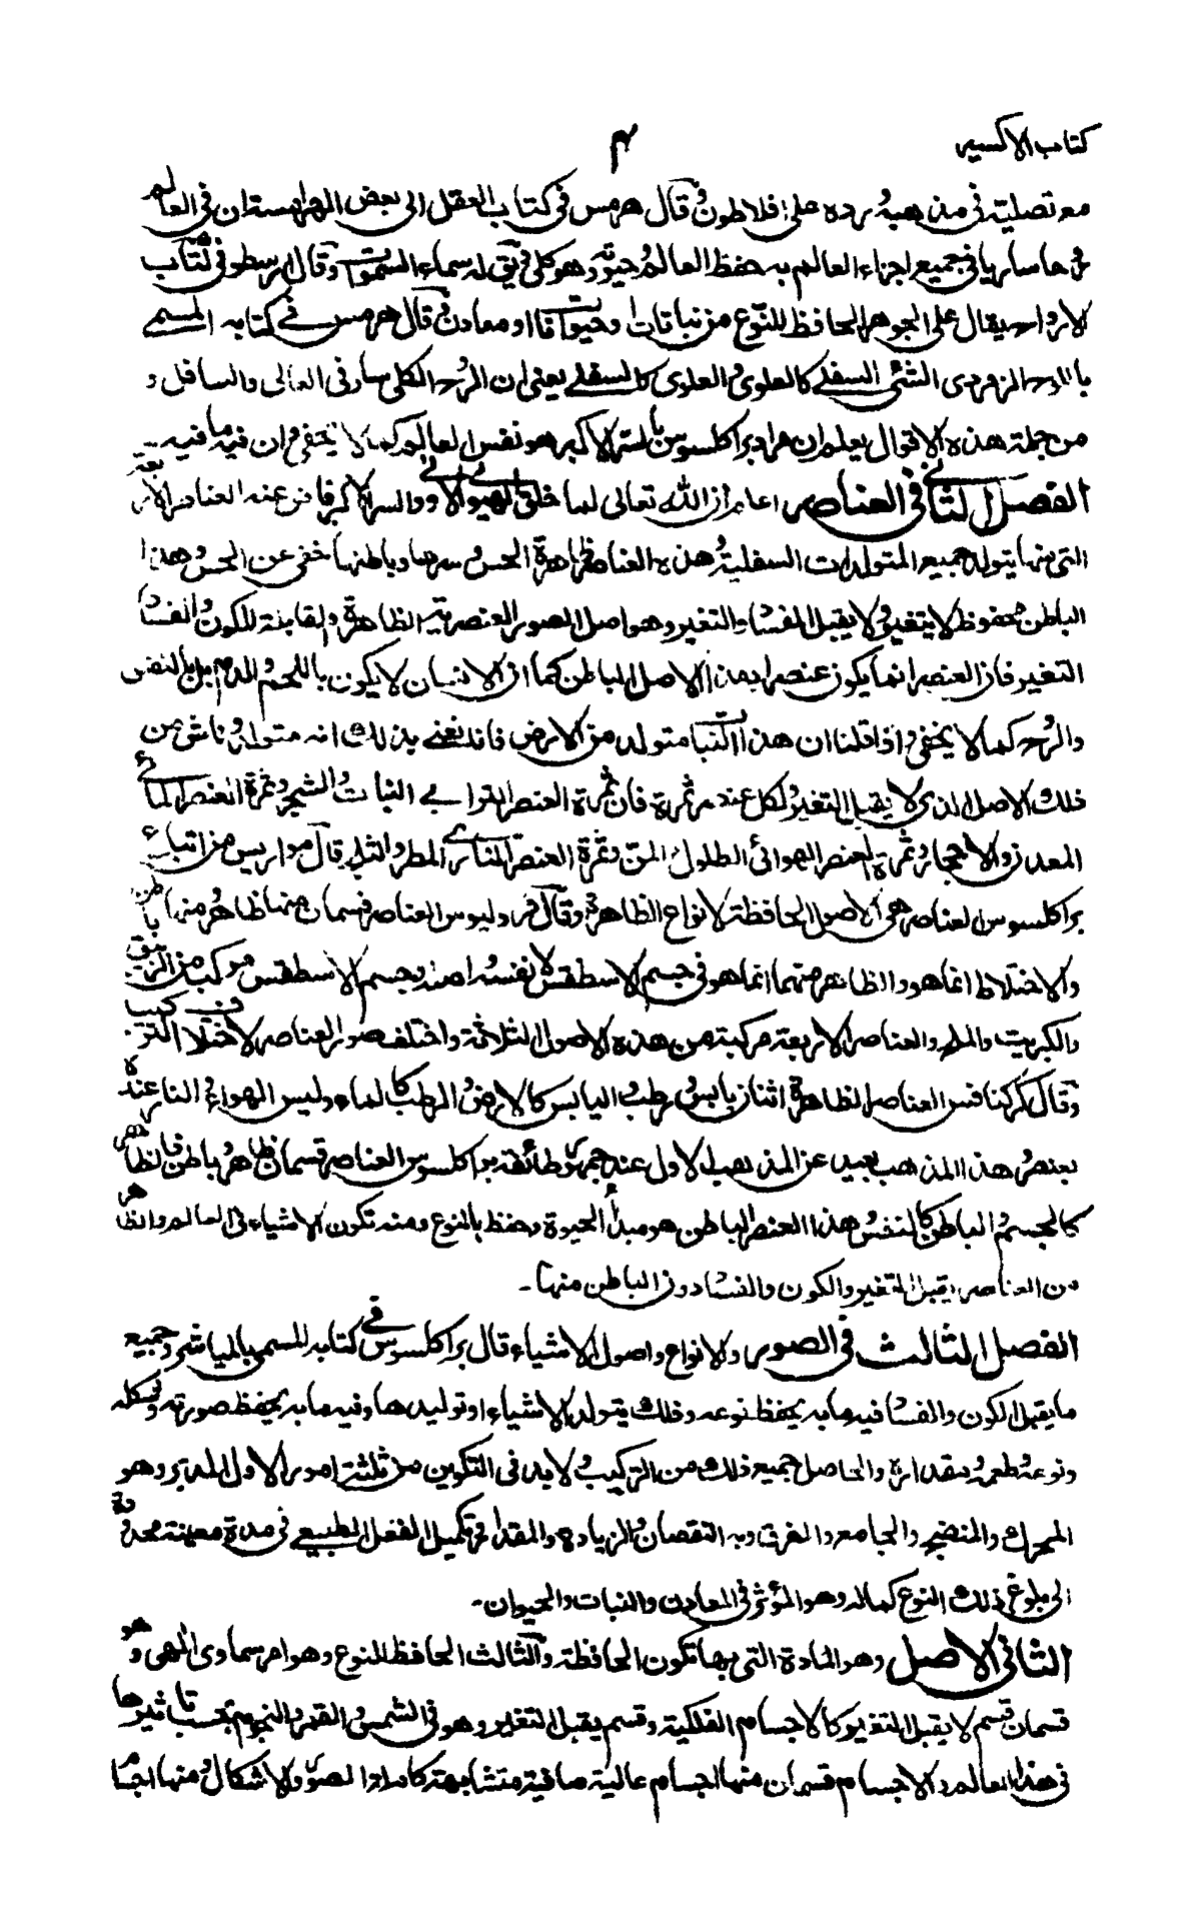 كتاب الاكسير
۴
مع تصليته في مذهبه ورده على افلاطون وقال هرمس في كتاب العقل الى بعض الهرامسة ان في العالم
روحا ساريا في جميع اجزاء العالم به حفظ العالم وحيوته وهو كلي يق له سماء السموات وقال ارسطو في كتاب
الارواح يقال على الجوهر الحافظ للنوع من نباتات او حيوانات او معادن وقال هرمس في كتابه المسمى
باللوح الزمردى الشئ السفلے كالعلوى والعلوى كالسفلے يعنى ان الروح الكلى سار فى العالى والسافل و
من جملة هذه الاقوال يعلم ان مراد براكلسوس بالسر الاكبر هو نفس العالم كما لا يخفى وان فيه ما فيه
الفصل الثاني في العناصر اعلم ان الله تعالى لما خلق الهيولى الاول والسر الاكبر فاض عنه العناصر الاربعة
التى منها يتولد جميع المتولدات السفلية وهذه العناصر ظاهرة الحس وسرها وباطنها خفى عن الحس وهذا
الباطن محفوظ لا يتغير ولا يقبل الفساد والتغير وهو اصل الصور العنصرية الظاهرة والقابلة للكون والفساد
التغير فان العنصر انما يكون عنصرا بهذا الاصل الباطن كما ان الانسان لا يكون باللحم والدم بل بالنفس
والروح كما لا يخفى واذا قلنا ان هذا النبات متولد من الارض فانه نعنى بذلك انه متولد وناش من
ذلك الاصل الذى لا يقبل التغير ولكل عنصر ثمرة فان ثمرة العنصر الترابے النبات والشجر وثمرة العنصر المائے
المعدن والاحجار وثمرة العنصر الهوائى الطلول المن وثمرة العنصر النارے المطر والثلج قال مواريس من اتباع
براكلسوس العناصر هى الاصول الحافظة لانواع الظاهرة وقال فردليوس العناصر قسمان منها ظاهر ومنها باطن
والاختلاط انما هو والظاهر منهما انما هو في جسم الاسطقس لا نفسه اصله جسم الاسطقس مركب من الزيبق
والكبريت والملح والعناصر الاربعة مركبة من هذه الاصول الثلاثة واختلف صور العناصر لاختلاف التركيب
وقال كركنافس العناصر الظاهرة اثنان يابس ورطب اليابس كالارض والرطب كالماء وليس الهواء والنار عنده
بعنصر وهذا المذهب بعيد عن المذهب الاول عند جمهور طائفة براكلسوس العناصر قسمان ظاهر وباطن فالظاهر
كالجسم والباطن كالنفس وهذا العنصر الباطن هو مبدأ الحيوة وحفظ بالنوع ومنه تكون الاشياء في العالم والظاهر
من العناصر يقبل التغير والكون والفساد دون الباطن منها۔
الفصل الثالث في الصور والانواع واصول الاشياء قال براكلسوس في كتابه المسمى بالمياشر وجميع
ما يقبل الكون والفساد فيه ما به يحفظ نوعه وذلك يتولد الاشياء او توليدها وفيه ما به يحفظ صورته وشكله
ونوعه وطعمه ومقداره والحاصل جميع ذلك من التركيب ولا بد فى التكوين من ثلثة امور الاول المدبر وهو
المحرك والمنضج والجامع والمفرق وبه النقصان والزيادة والمقدار في تكميل الفعل الطبيعے فى مدة معينة محدودة
الى بلوغ ذلك النوع كماله وهو المؤثر فى المعادن والنبات والحيوان۔
الثانى الاصل وهو المادة التى بها تكون الحافظة والثالث الحافظ للنوع وهو امر سماوى الهى وهو
قسمان قسم لا يقبل التغير كالاجسام الفلكية وقسم يقبل التغير وهو فى الشمس والقمر والنجوم بحسب تاثيرها
فى هذا العالم والاجسام قسمان منها اجسام عالية صافية متشابهة الصور والاشكال ومنها اجسام